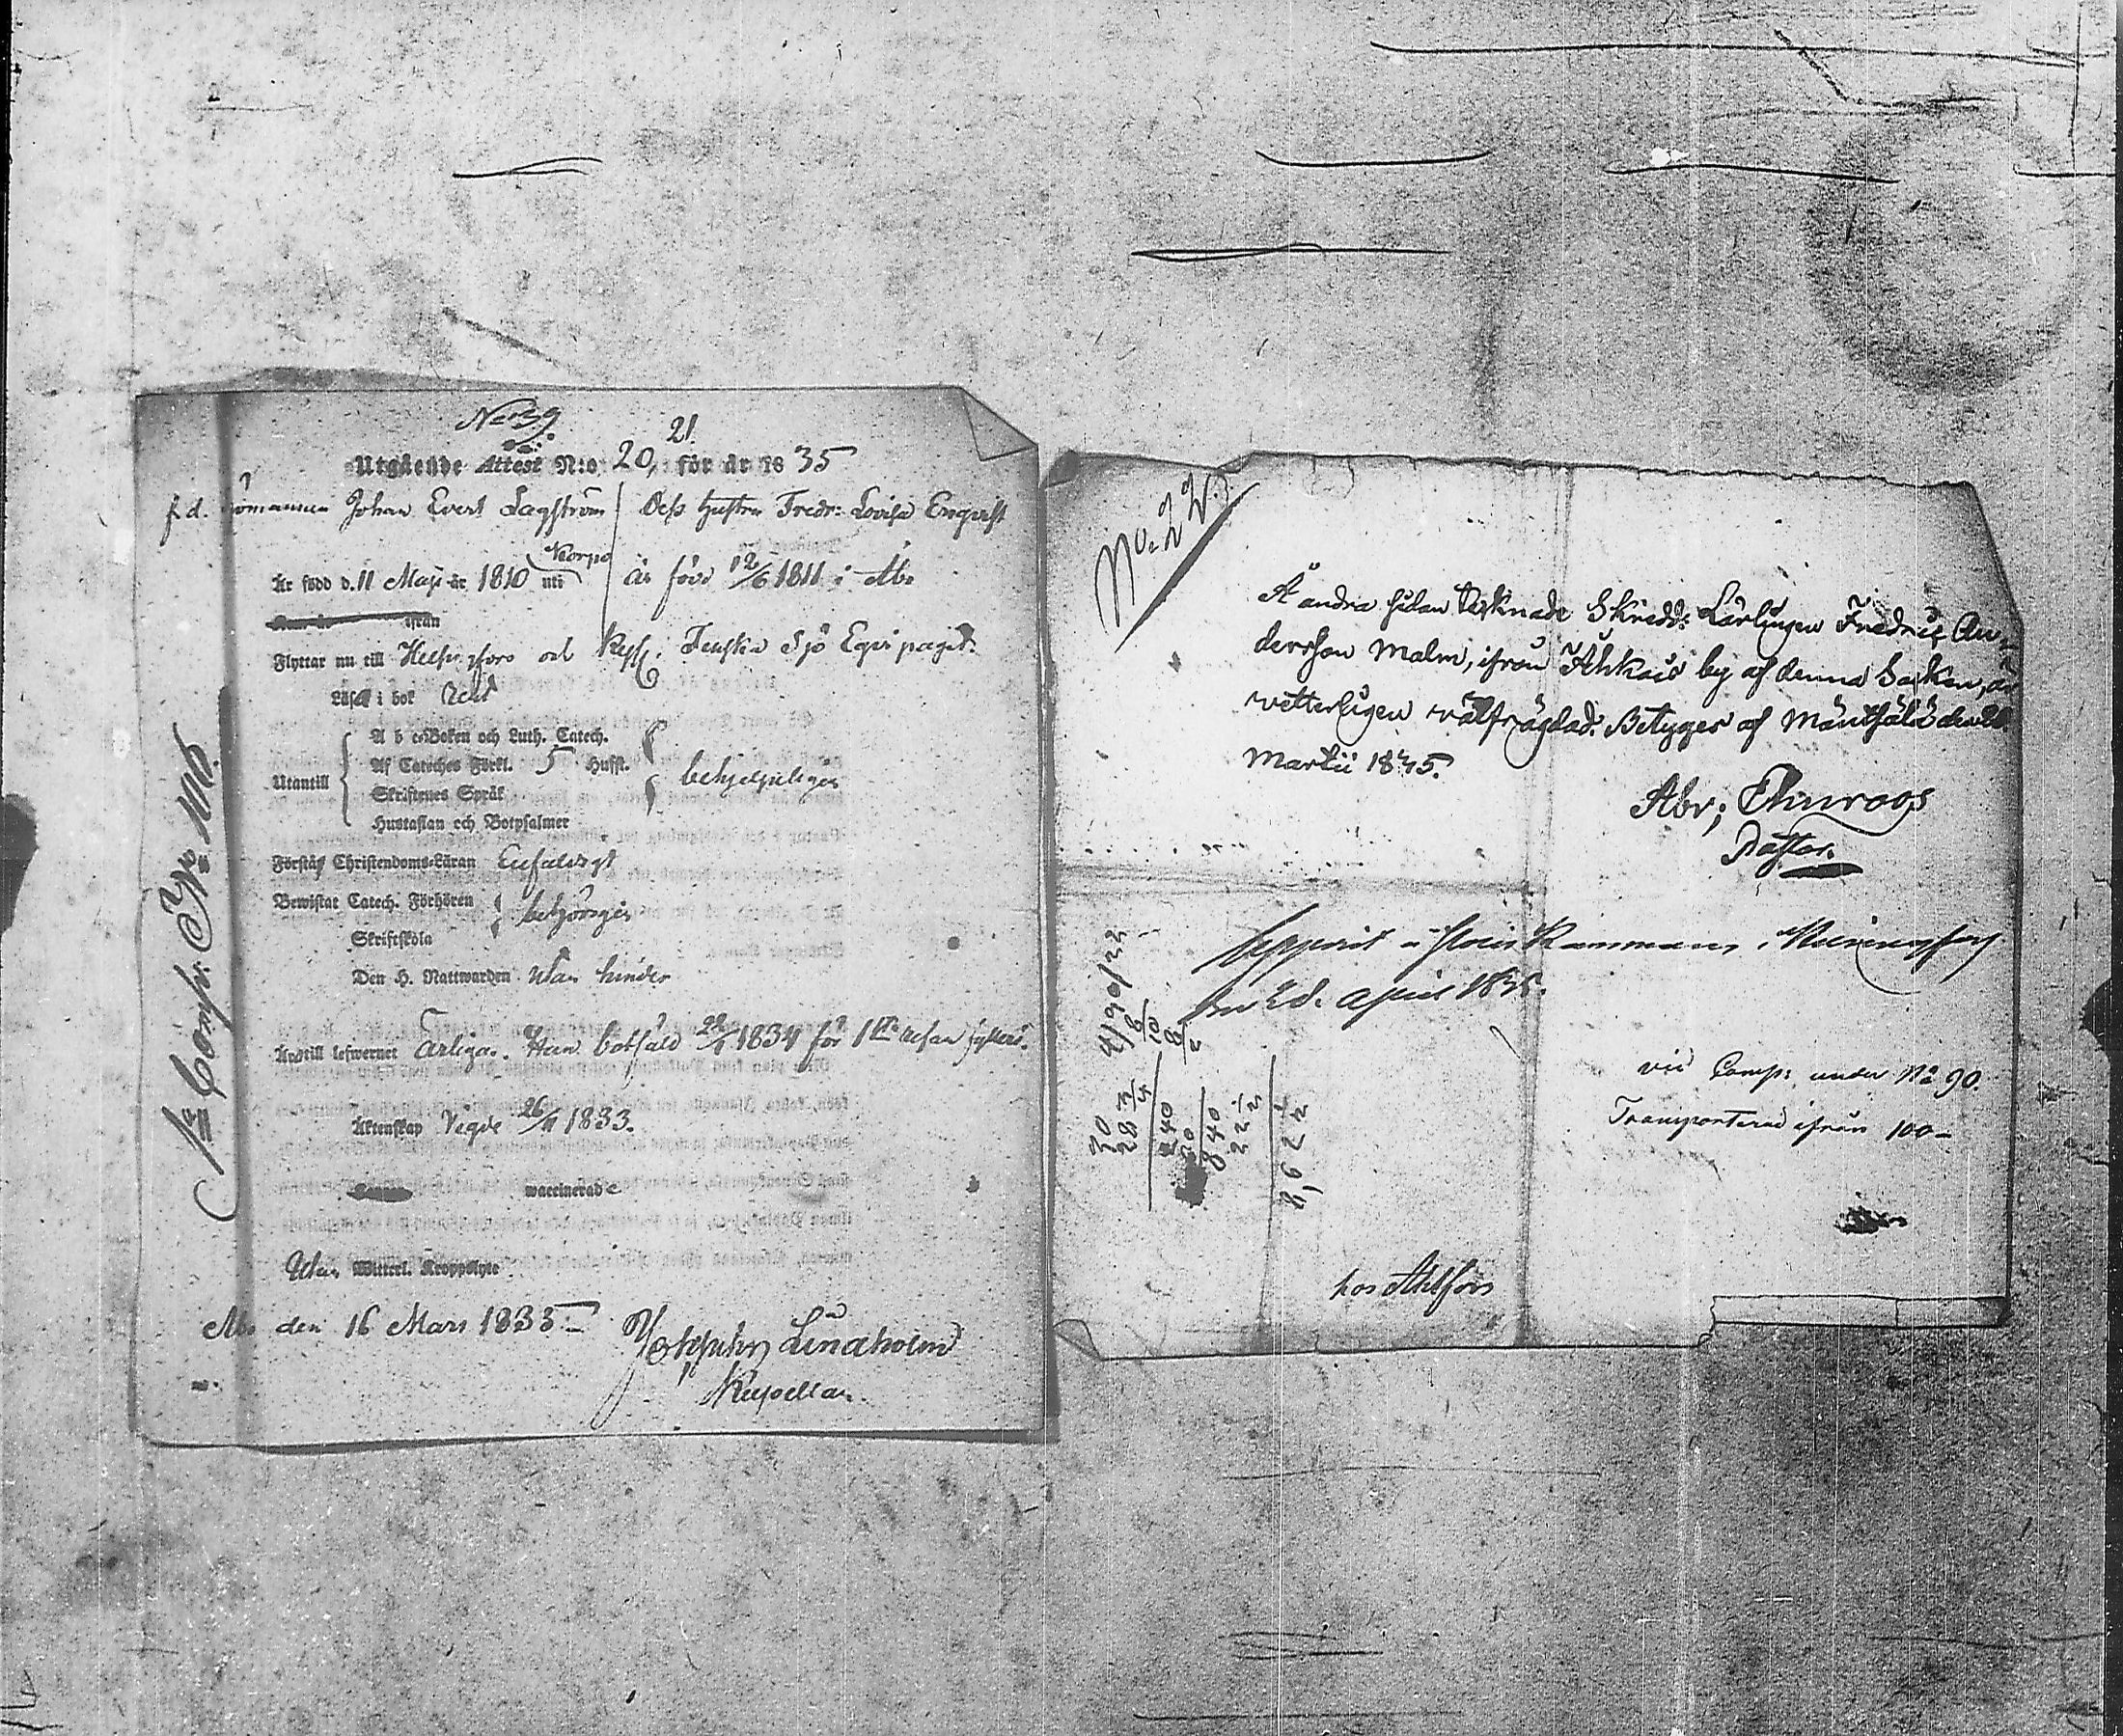 No 39
21
Utgående Attest N:o 20, för år 18 35
f. d. Sjömannen Johan Evert Lagström Dess hustru Fredr: Lovisa Enqvist
Är född d. 11 Maji år 1810 uti Korpo är född 12/6 1811 i Åbo
ifrån
Flyttar nu till Helsingfors och Finska Sjö Equipaget.
Läser i bok
A b c-Boken och Luth. Catech.
Utantill Af Cateches Förkl. 5 Hufst. behjelpligen
Skriftenes Språk
Hustaflan och Botpsalmer
Förstår Christendoms-Läran Enfaldigt
Bewistat Catech. Förhören behörigen
Skriftskola
Den H. Nattwarden utan hinder
Till lefwernet Ärliga. Han botfäld 1834 för 1sta resan fylleri.
Äktenskap Vigde 26/11 1833.
waccinerade
Utan Witterl. Kroppslyte
Åbo den 16 Mars 1835
Lindholm
Kapellan.
1a Comp. No 106.
No. 22.
Å andra sidan tecknade Skredd: Lärlingen Fredric An-
dersson Malm, ifrån by af denna Socken, är
vetterligen välfrägdad. Betyges af Mäntsälä den
Martii 1835.
Abr;
Pastor.
Uppvist i
den 28. April 1835.
vid Comp: under No 90.
Transporterad ifrån 100
30
28 3/4
240
60
840
22 1/2
862 1/2
hos Ahlfors